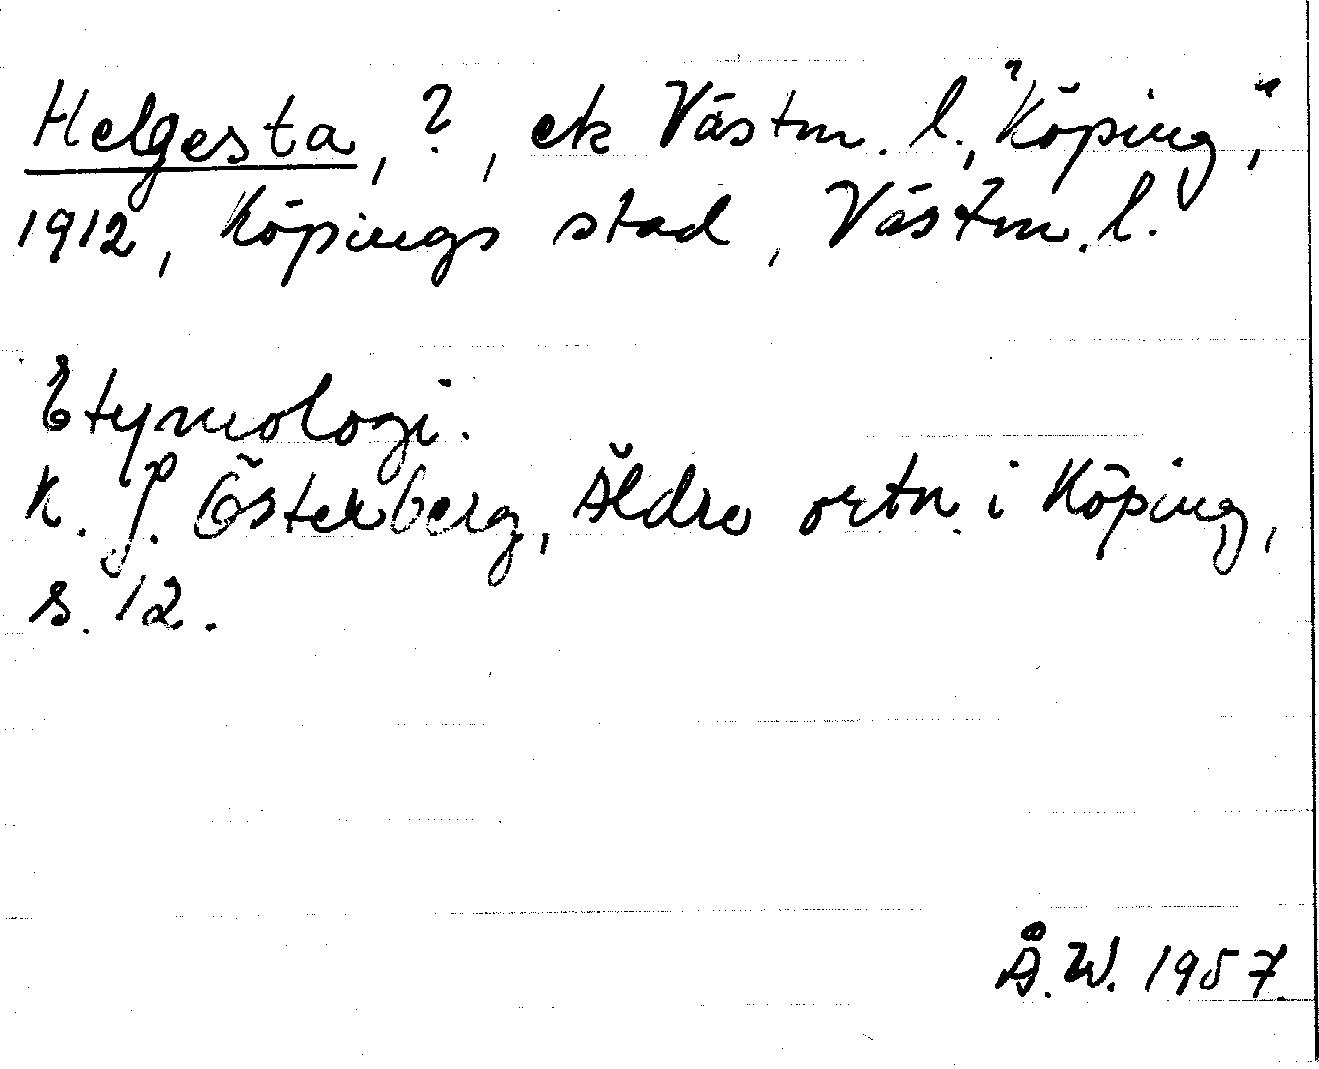 Helgesta, ?, ek Västm. l., "Köping",
1912, Köpings stad, Västm. l.
Etymologi.
K. J. Österberg, Äldre ortn. i Köping,
s. 12.
Å. W. 1957.